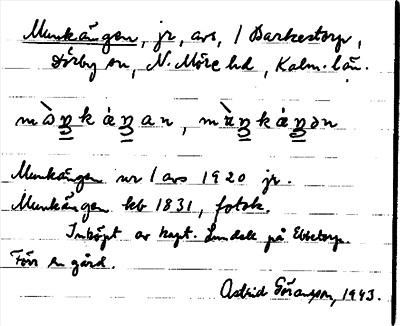 Munkängen, jr, avs, / Barkestorp,
Dörby sn, N. Möre hd, Kalm. län.
Munkängen nr 1 avs 1920 jr.
Munkängen kb 1831, fotok.
Inköpt av kapt. Lundell på Ebbetorp.
Förr en gård.
Astrid Göransson, 1943.